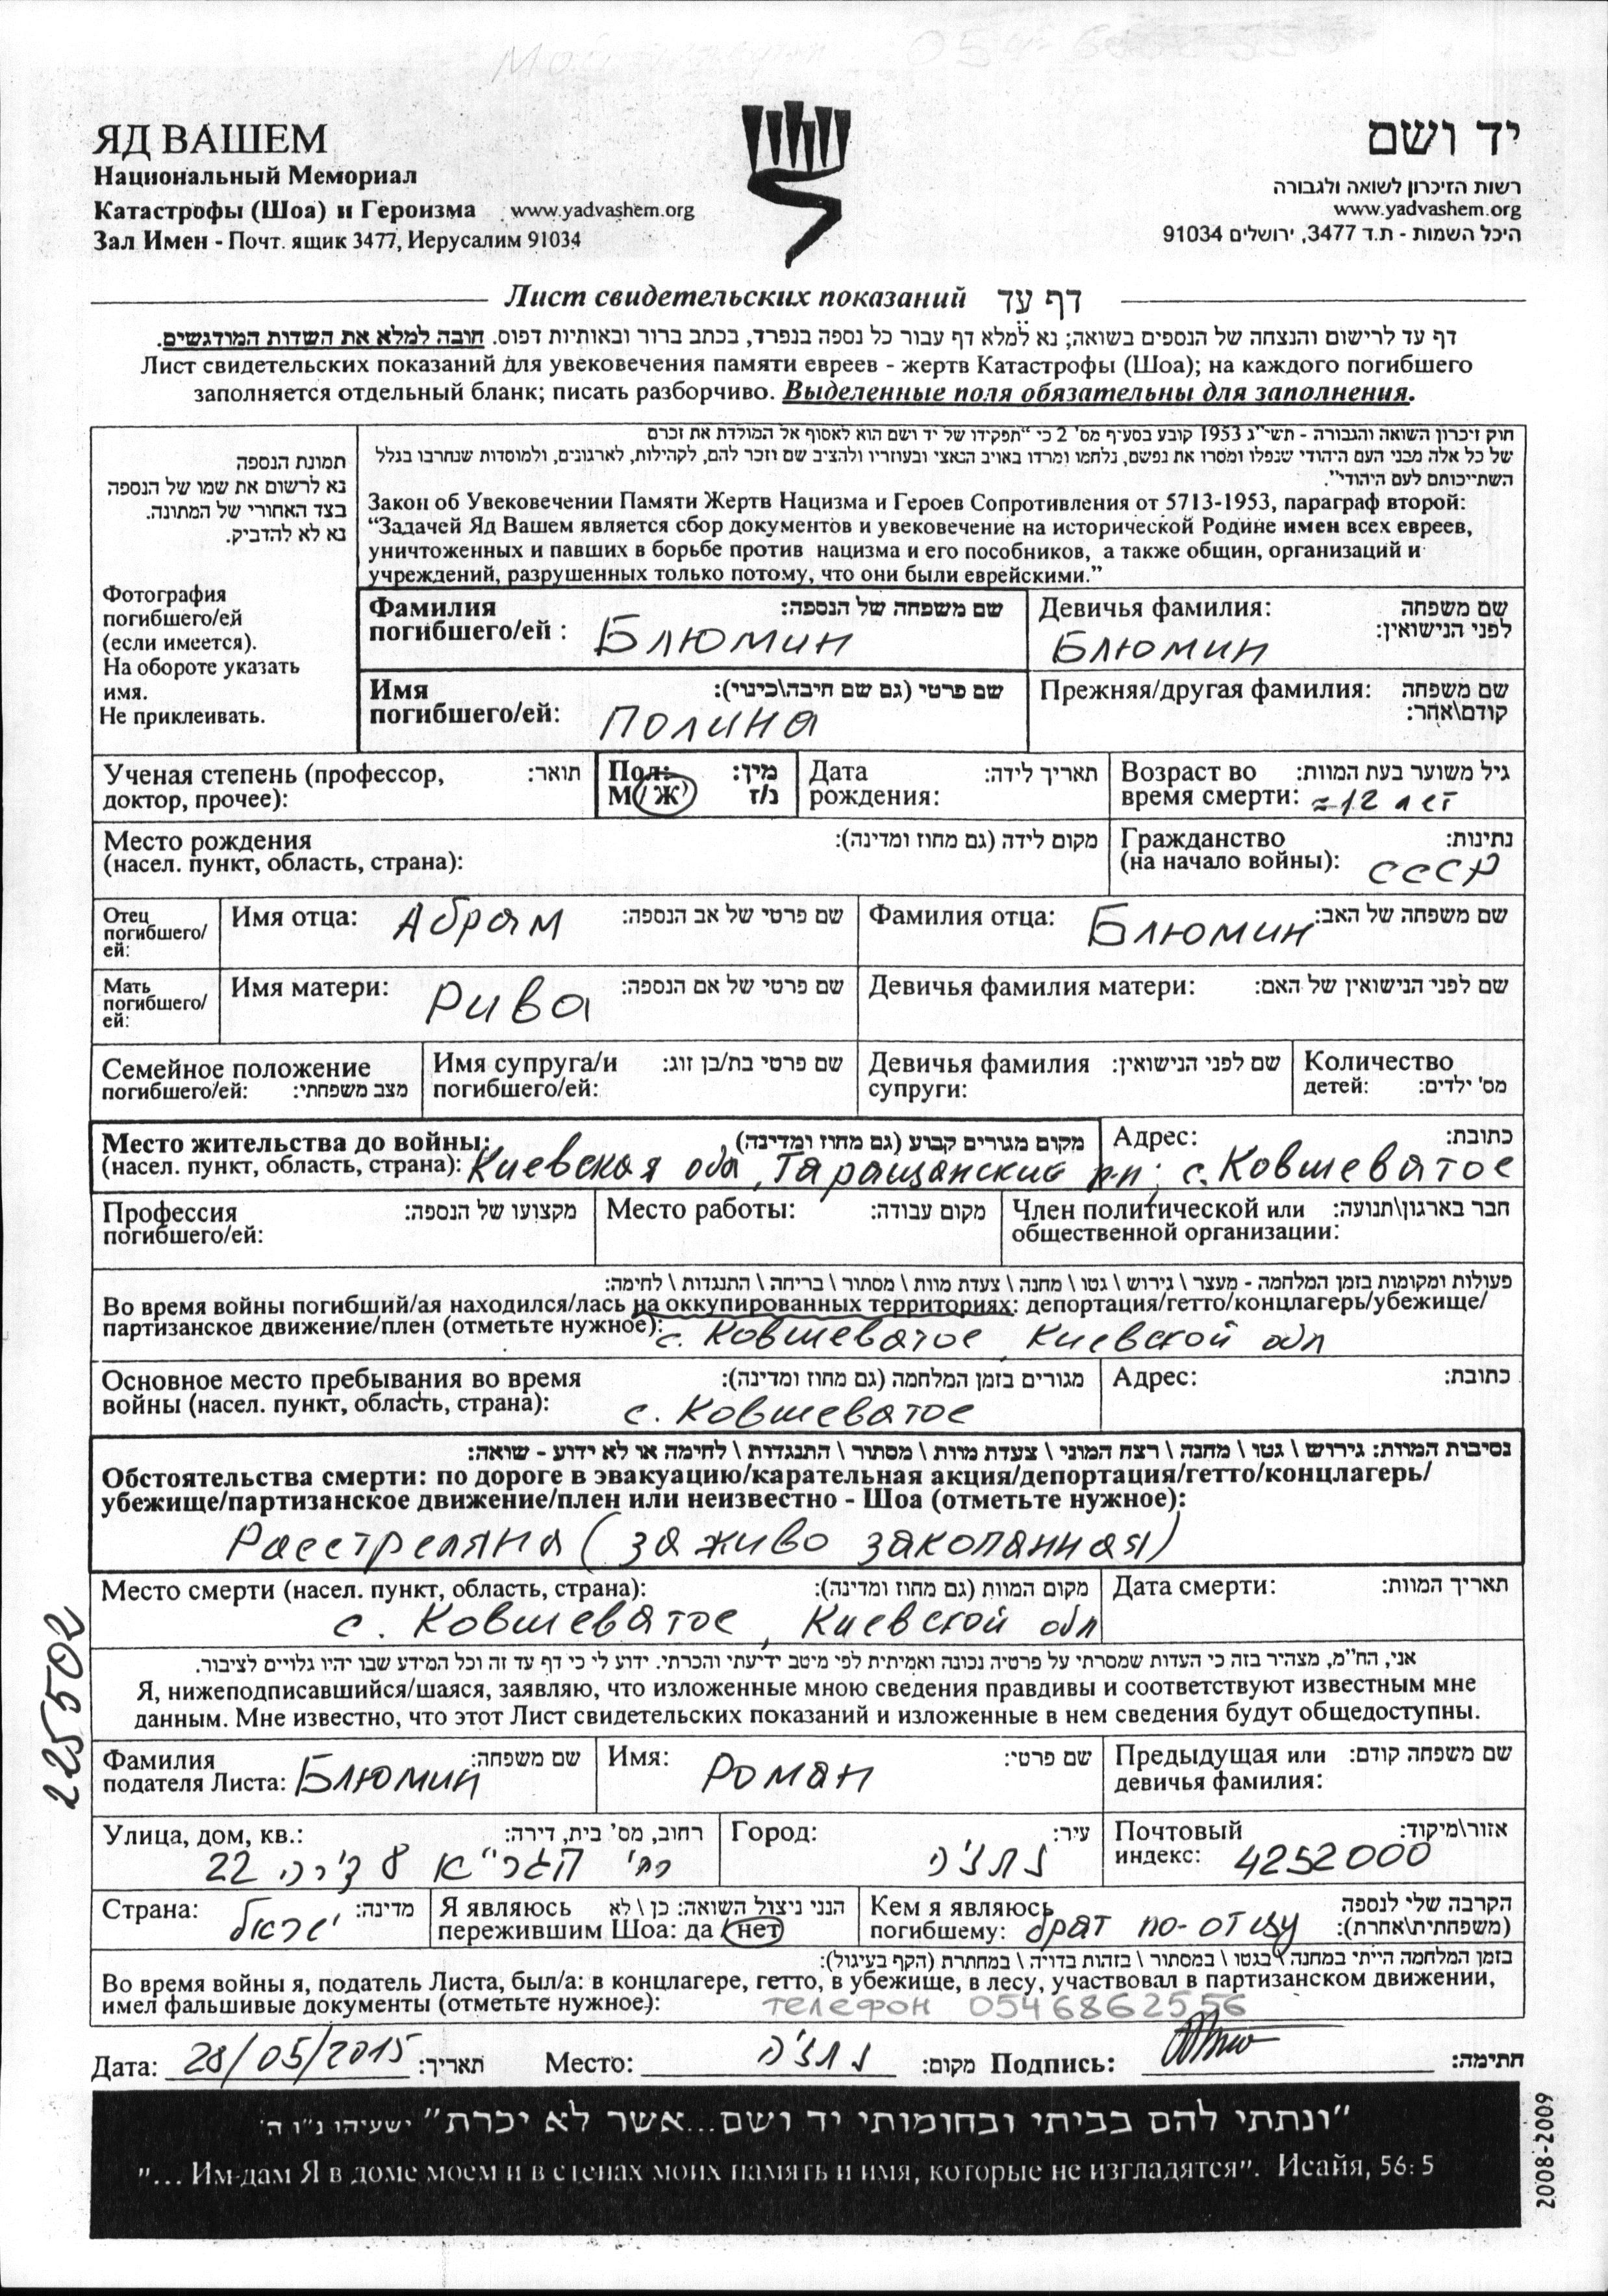 ЯД ВАШЕМ
Национальный Мемориал
Катастрофы (Шоа) и Героизма www.yadvashem.org
Зал Имен - Почт. ящик 3477, Иерусалим 91034
יד ושם
רשות הזיכרון לשואה ולגבורה
www.yadvashem.org
היכל השמות - ת.ד 3477, ירושלים 91034
Лист свидетельских показаний דף עד
דף עד לרישום והנצחה של הנספים בשואה; נא למלא דף עבור כל נספה בנפרד, בכתב ברור ובאותיות דפוס. חובה למלא את השדות המודגשים.
Лист свидетельских показаний для увековечения памяти евреев - жертв Катастрофы (Шоа); на каждого погибшего
заполняется отдельный бланк; писать разборчиво. Выделенные поля обязательны для заполнения.
תמונת הנספה
נא לרשום את שמו של הנספה
בצד האחורי של התמונה.
נא לא להדביק.
Фотография
погибшего/ей
(если имеется).
На обороте указать
имя.
Не приклеивать.
חוק זיכרון השואה והגבורה - תשי"ג 1953 קובע בסעיף מס' 2 כי "תפקידו של יד ושם הוא לאסוף אל המולדת את זכרם
של כל אלה מבני העם היהודי שנפלו ומסרו את נפשם, נלחמו ומרדו באויב הנאצי ובעוזריו ולהציב שם וזכר להם, לקהילות, לארגונים, ולמוסדות שנחרבו בגלל
השתייכותם לעם היהודי".
Закон об Увековечении Памяти Жертв Нацизма и Героев Сопротивления от 5713-1953, параграф второй:
“Задачей Яд Вашем является сбор документов и увековечение на исторической Родине имен всех евреев,
уничтоженных и павших в борьбе против нацизма и его пособников, а также общин, организаций и
учреждений, разрушенных только потому, что они были еврейскими.”
Фамилия שם משפחה של הנספה:
погибшего/ей : Блюмин
Девичья фамилия: שם משפחה
לפני הנישואין:
Блюмин
Имя שם פרטי (גם שם חיבה\כינוי):
погибшего/ей: Полина
Прежняя/другая фамилия: שם משפחה
קודם\אחר:
Ученая степень (профессор, תואר:
доктор, прочее):
Пол: מין:
М/Ж ז/נ
Дата תאריך לידה:
рождения:
Возраст во גיל משוער בעת המוות:
время смерти: ≈12 лет
Место рождения מקום לידה (גם מחוז ומדינה):
(насел. пункт, область, страна):
Гражданство נתינות:
(на начало войны): СССР
Отец
погибшего/
ей:
Имя отца: Абрам שם פרטי של אב הנספה:
Фамилия отца: Блюмин שם משפחה של האב:
Мать
погибшего/
ей:
Имя матери: Рива שם פרטי של אם הנספה:
Девичья фамилия матери: שם לפני הנישואין של האם:
Семейное положение
погибшего/ей: מצב משפחתי:
Имя супруга/и שם פרטי בת/בן זוג:
погибшего/ей:
Девичья фамилия שם לפני הנישואין:
супруги:
Количество
детей: מס' ילדים:
Место жительства до войны: מקום מגורים קבוע (גם מחוז ומדינה)
(насел. пункт, область, страна): Киевская обл, Таращанский р-н; с. Ковшеватое
Адрес: כתובת:
Профессия מקצועו של הנספה:
погибшего/ей:
Место работы: מקום עבודה:
Член политической или חבר בארגון\תנועה:
общественной организации:
פעולות ומקומות בזמן המלחמה - מעצר \ גירוש \ גטו \ מחנה \ צעדת מוות \ מסתור \ בריחה \ התנגדות \ לחימה:
Во время войны погибший/ая находился/лась на оккупированных территориях: депортация/гетто/концлагерь/убежище/
партизанское движение/плен (отметьте нужное): с. Ковшеватое, Киевской обл
Основное место пребывания во время מגורים בזמן המלחמה (גם מחוז ומדינה):
войны (насел. пункт, область, страна): с. Ковшеватое
Адрес: כתובת:
נסיבות המוות: גירוש \ גטו \ מחנה \ רצח המוני \ צעדת מוות \ מסתור \ התנגדות \ לחימה או לא ידוע - שואה:
Обстоятельства смерти: по дороге в эвакуацию/карательная акция/депортация/гетто/концлагерь/
убежище/партизанское движение/плен или неизвестно - Шоа (отметьте нужное):
Расстреляна (заживо закопанная)
Место смерти (насел. пункт, область, страна): מקום המוות (גם מחוז ומדינה):
с. Ковшеватое, Киевской обл
Дата смерти: תאריך המוות:
אני, הח"מ, מצהיר בזה כי העדות שמסרתי על פרטיה נכונה ואמיתית לפי מיטב ידיעתי והכרתי. ידוע לי כי דף עד זה וכל המידע שבו יהיו גלויים לציבור.
Я, нижеподписавшийся/шаяся, заявляю, что изложенные мною сведения правдивы и соответствуют известным мне
данным. Мне известно, что этот Лист свидетельских показаний и изложенные в нем сведения будут общедоступны.
Фамилия שם משפחה:
подателя Листа: Блюмин
Имя: Роман שם פרטי:
Предыдущая или שם משפחה קודם:
девичья фамилия:
Улица, дом, кв.: רחוב, מס' בית, דירה:
רח' הגר"א 8 דירה 22
Город: עיר:
נתניה
Почтовый אזור\מיקוד:
индекс: 4252000
Страна: ישראל מדינה:
Я являюсь הנני ניצול השואה: כן \ לא
пережившим Шоа: да / нет
Кем я являюсь הקרבה שלי לנספה
погибшему: брат по-отцу (משפחתית\אחרת):
בזמן המלחמה הייתי במחנה \ בגטו \ במסתור \ בזהות בדויה \ במחתרת (הקף בעיגול):
Во время войны я, податель Листа, был/а: в концлагере, гетто, в убежище, в лесу, участвовал в партизанском движении,
имел фальшивые документы (отметьте нужное): телефон 0546862556
Дата: 28/05/2015 תאריך: Место: נתניה מקום: Подпись: חתימה:
"ונתתי להם בביתי ובחומותי יד ושם...אשר לא יכרת" ישעיהו נ"ו ה'
"... Им дам Я в доме моем и в стенах моих память и имя, которые не изгладятся". Исайя, 56: 5
225502
2008-2009